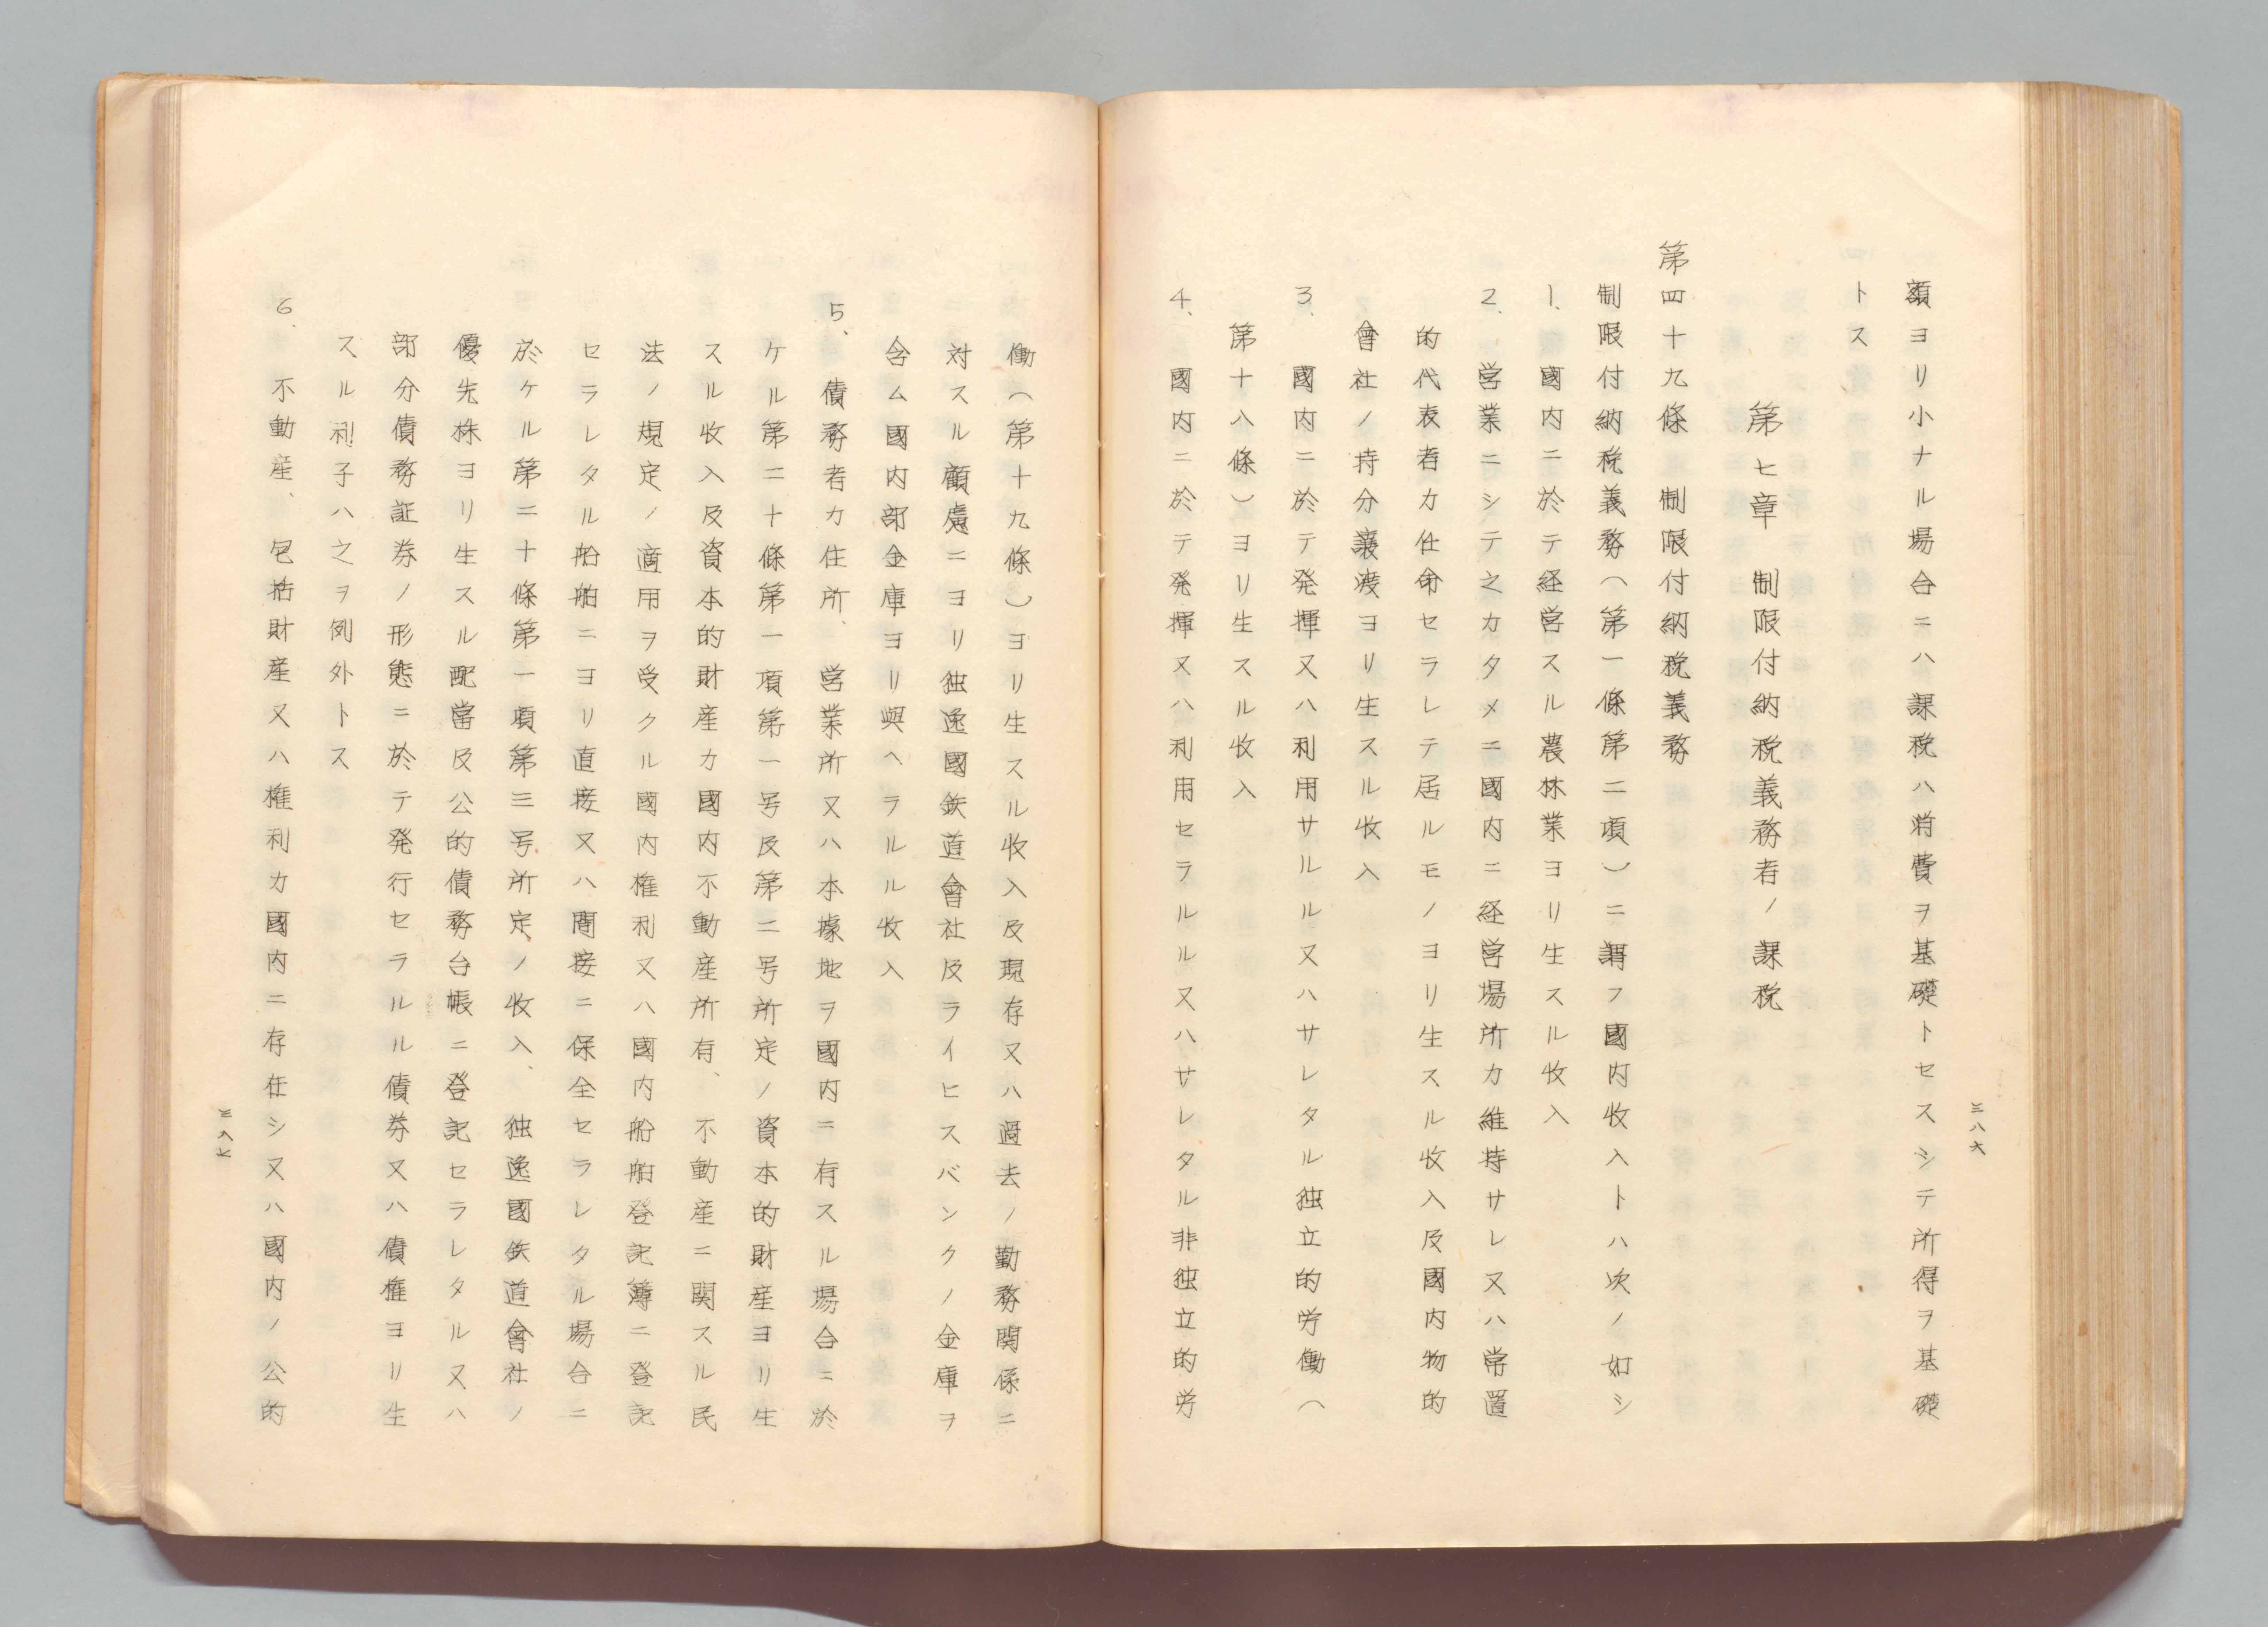 三八六
額ヨリ小ナル場合ニハ課税ハ消費ヲ基礎トセスシテ所得ヲ基礎
トス
第七章　制限付納税義務者ノ課税
第四十九條　制限付納税義務
制限付納税義務（第一條第二項）ニ謂フ國内收入トハ次ノ如シ
1、國内ニ於テ経営スル農林業ヨリ生スル收入
2、営業ニシテ之カタメニ國内ニ経営場所カ維持サレ又ハ常置
的代表者カ任命セラレテ居ルモノヨリ生スル收入及國内物的
會社ノ持分譲渡ヨリ生スル收入
3、國内ニ於テ発揮又ハ利用サルル又ハサレタル独立的労働（
第十八條）ヨリ生スル收入
4、國内ニ於テ発揮又ハ利用セラルル又ハサレタル非独立的労
働（第十九條）ヨリ生スル收入及現存又ハ過去ノ勤務関係ニ
対スル顧慮ニヨリ独逸國鉄道會社及ライヒスバンクノ金庫ヲ
含ム國内部金庫ヨリ與ヘラルル收入
5、債務者カ住所、営業所又ハ本據地ヲ國内ニ有スル場合ニ於
ケル第二十條第一項第一号及第二号所定ノ資本的財産ヨリ生
スル收入及資本的財産カ國内不動産所有、不動産ニ関スル民
法ノ規定ノ適用ヲ受クル國内権利又ハ國内船舶登記簿ニ登記
セラレタル船舶ニヨリ直接又ハ間接ニ保全セラレタル場合ニ
於ケル第二十條第一項第三号所定ノ收入、独逸國鉄道會社ノ
優先株ヨリ生スル配當及公的債務台帳ニ登記セラレタル又ハ
部分債務証券ノ形態ニ於テ発行セラルル債券又ハ債権ヨリ生
スル利子ハ之ヲ例外トス
6、不動産、包括財産又ハ権利カ國内ニ存在シ又ハ國内ノ公的